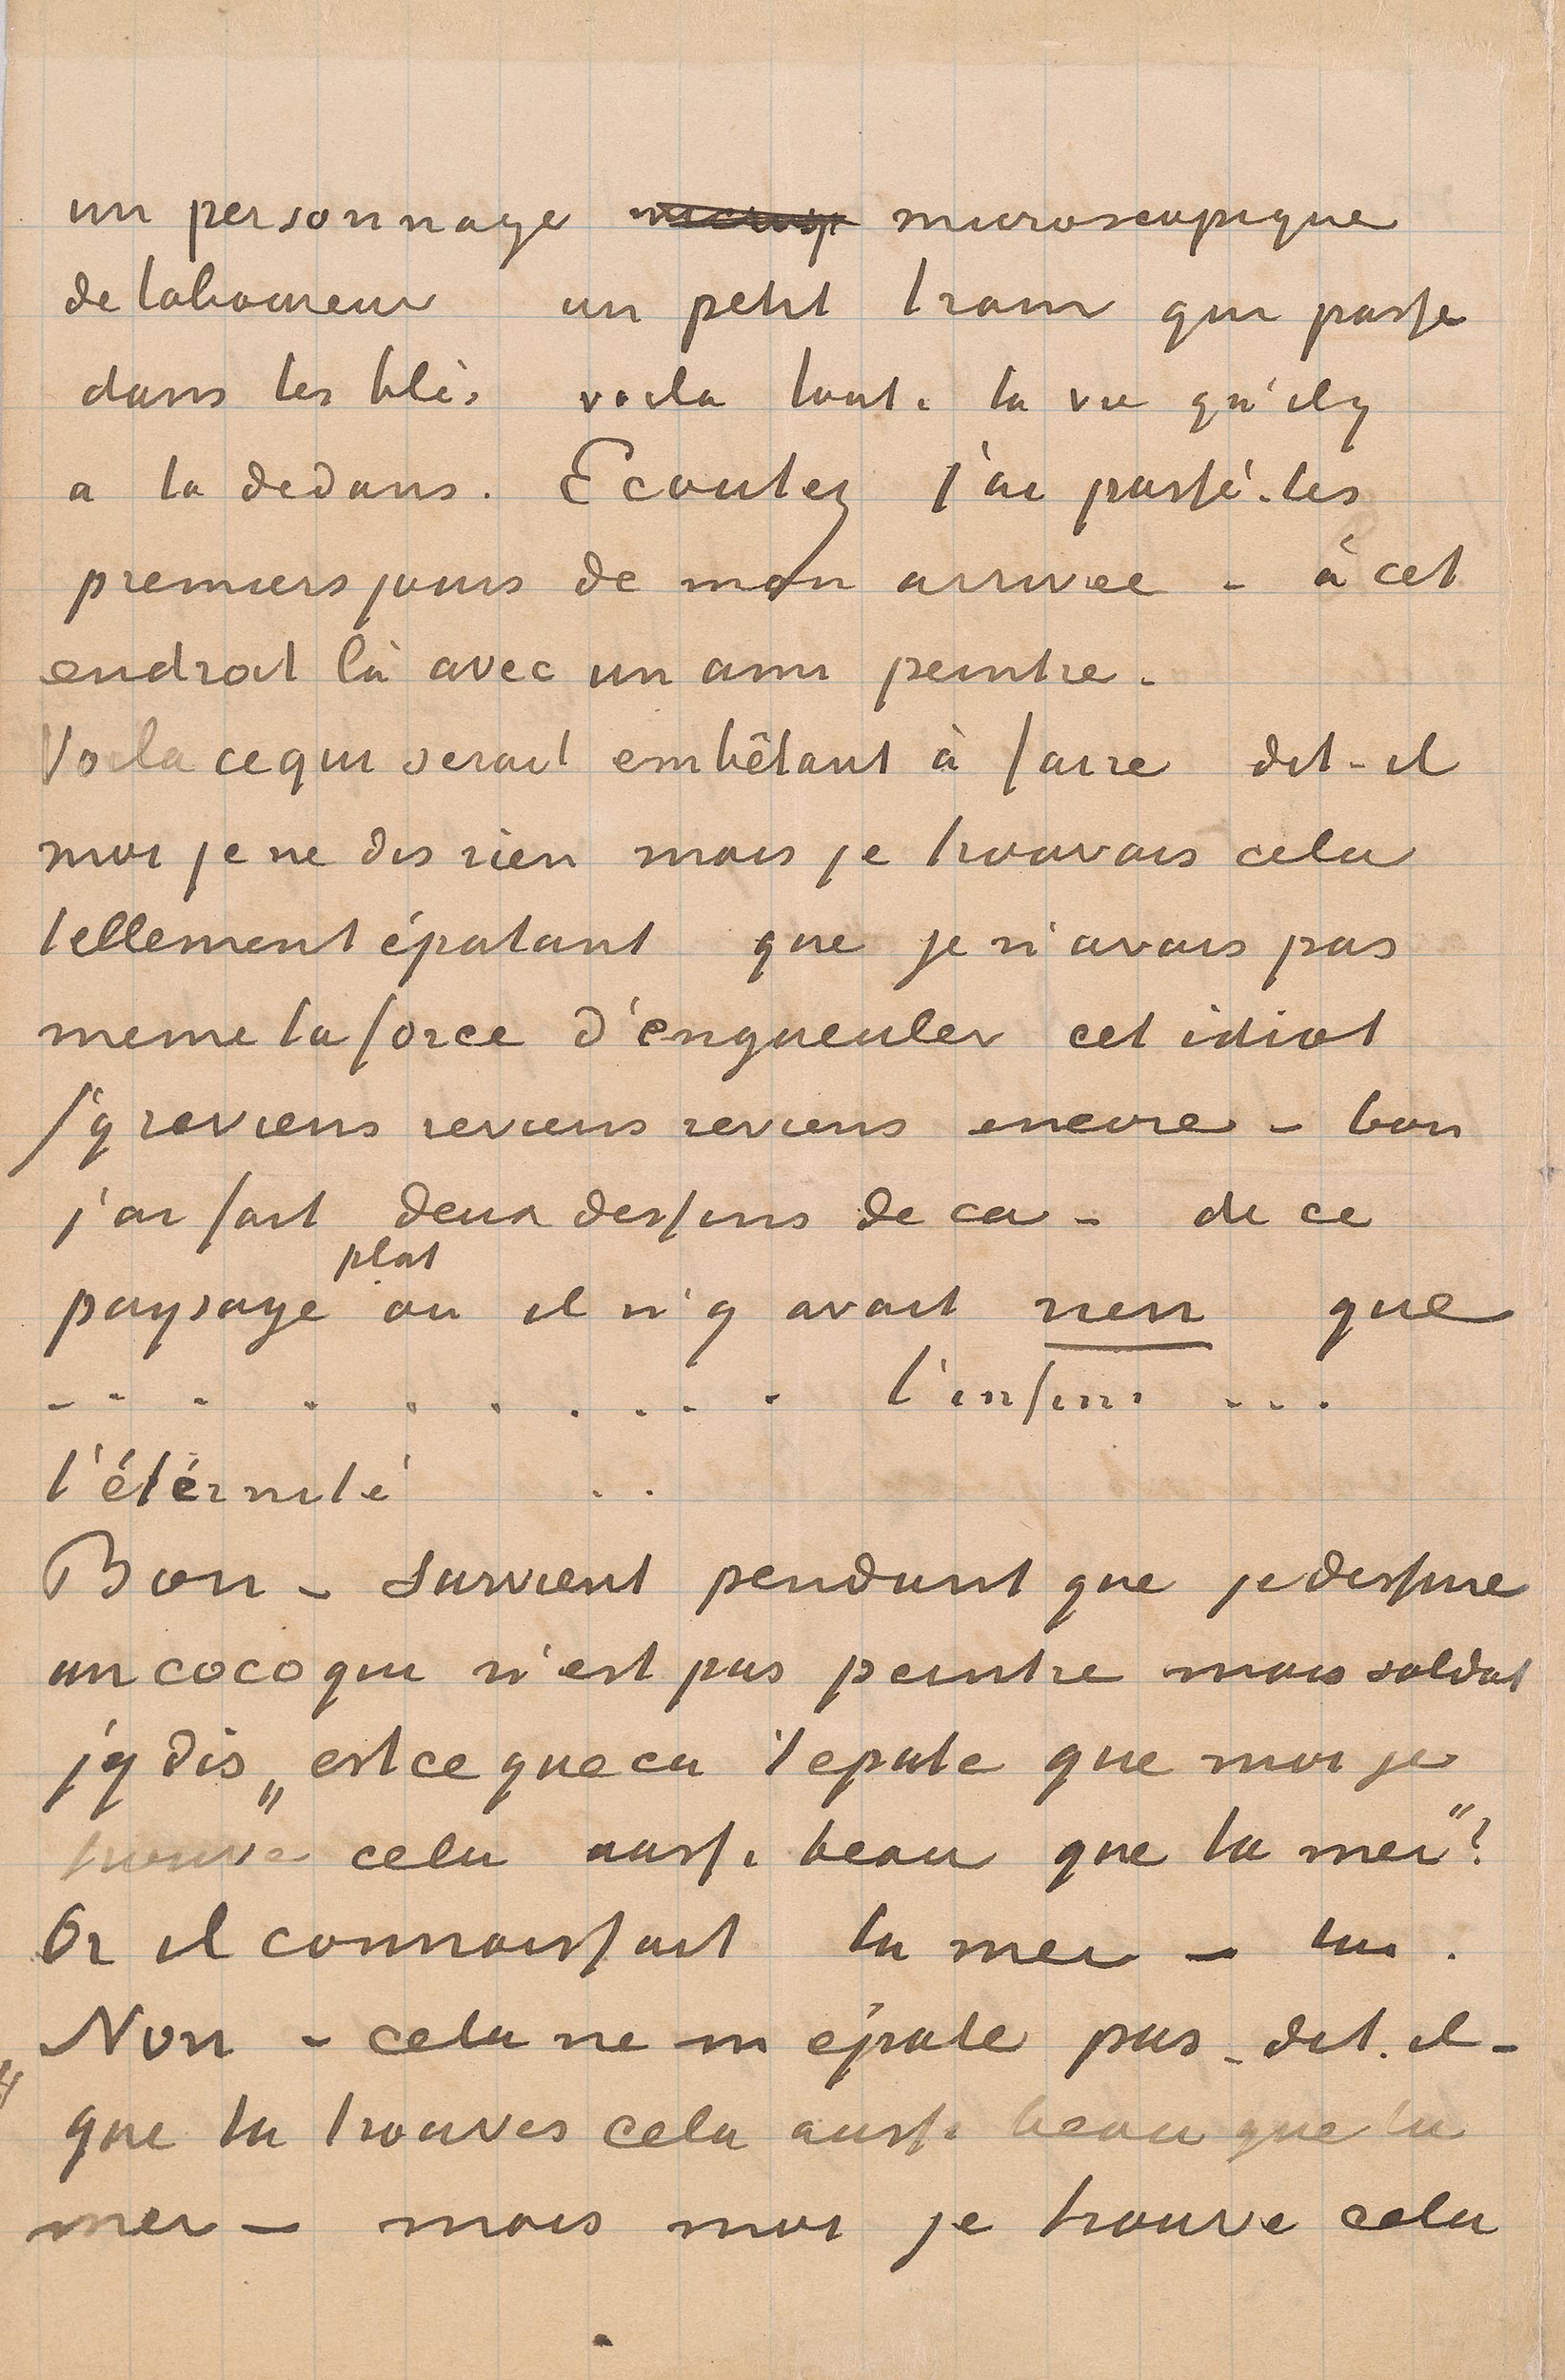 un personnage microscopique
de laboureur un petit train qui passe
dans les blés voila toute la vie qu'il y
a la dedans. Ecoutez j'ai passé - les
premiers jours de mon arrivee - à cet
endroit là avec un ami peintre.
Voila ce qui serait embêtant à faire dit-il
moi je ne dis rien mais je trouvais cela
tellement épatant que je n'avais pas
meme la force d'engueuler cet idiot
J'y reviens reviens reviens encore - bon
j'ai fait deux dessins de ca - de ce
plat
paysage ou il n'y avait rien que
- - . . . . . . . . l'infini ...
l'étérnité ..
Bon - survient pendant que je dessine
un coco qui n'est pas peintre mais soldat
j'y dis „est ce que ca t'epate que moi je
trouve cela aussi beau que la mer"?
Or il connaissait la mer - lui.
„Non - cela ne m'épate pas - dit-il -
que tu trouves cela aussi beau que la
mer - mais moi je trouve cela